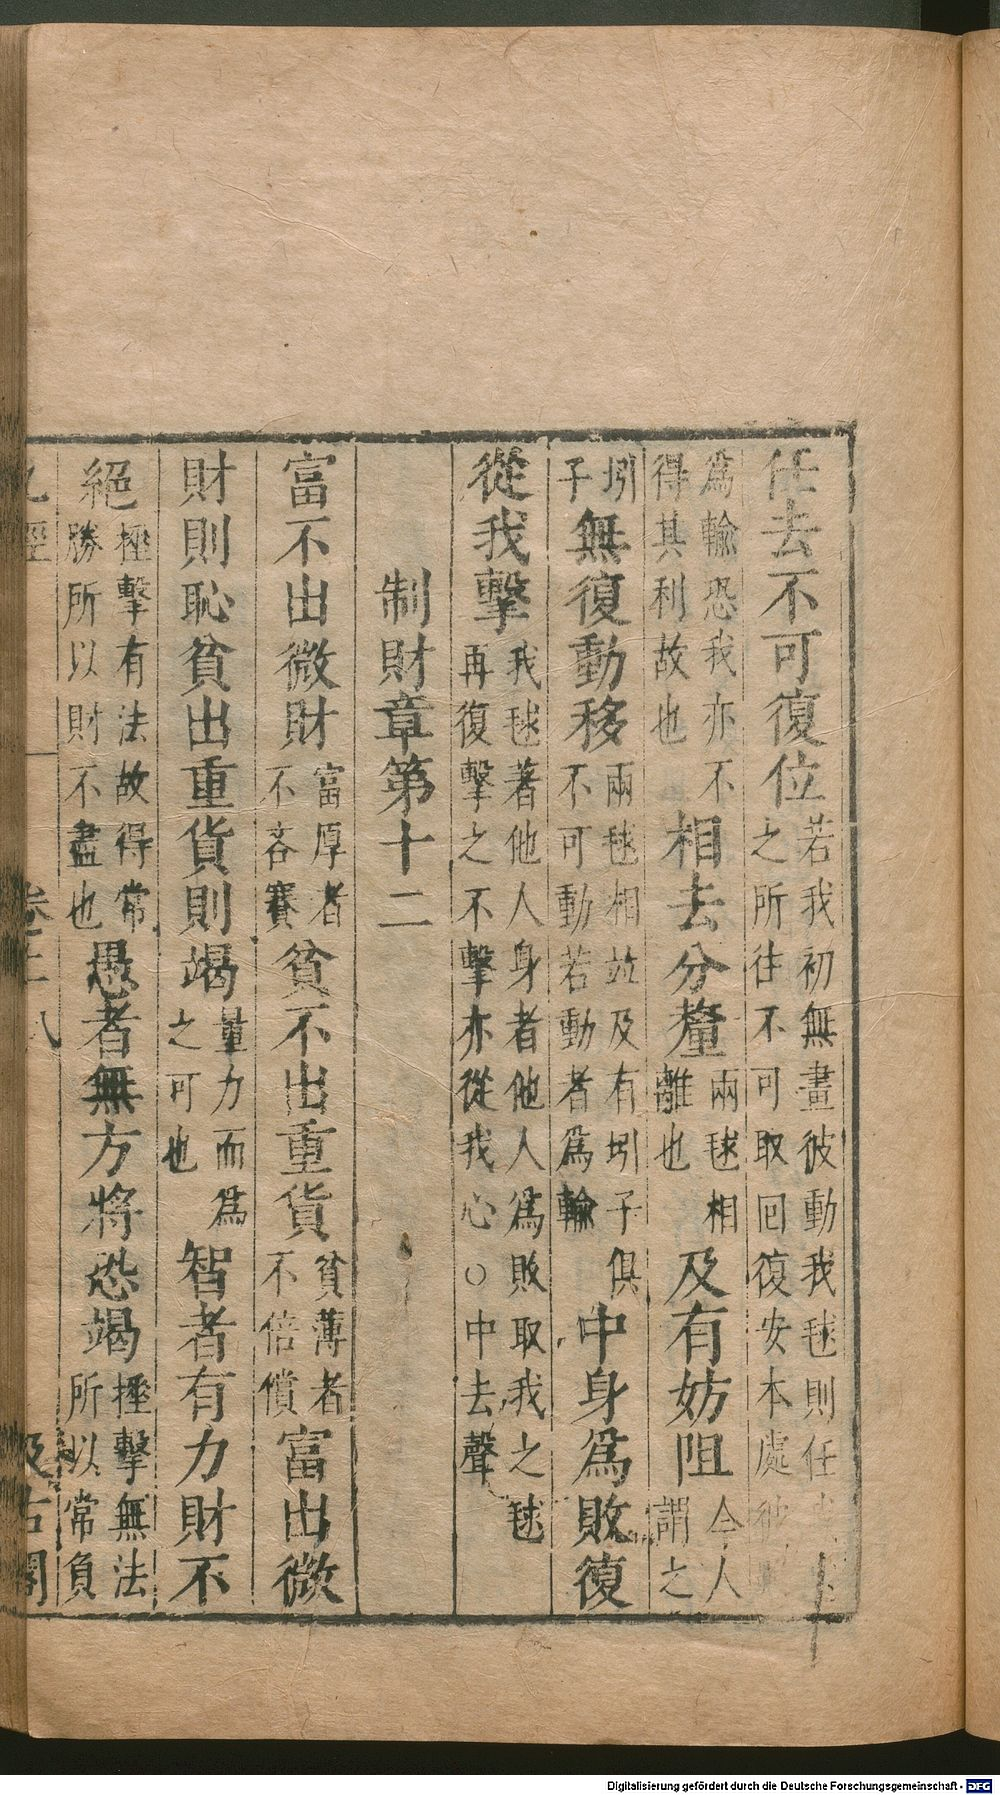 任去不可復位若我初無畫彼動我毬則任
之所往不可取回復安本處
為輸恐我亦不
得其利故也相去分釐兩毬相
離也及有妨阻今人
謂之
圽
子無復動移兩毬相並及有圽子俱
不可動若動者為輸中身為敗復
從我擊我毬著他人身者他人為敗取我之毬
再復擊之不擊亦從我心○中去聲
制財章第十二
富不出微財富厚者
不吝賽貧不出重貨貧薄者
不倍償富出微
財則恥貧出重貨則竭量力而為
之可也智者有力財不
絕捶擊有法故得常
勝所以財不盡也愚者無方將恐竭捶擊無法
所以常負
丸經
卷上
八
汲古閣
Digitalisierung gefördert durch die Deutsche Forschungsgemeinschaft - DFG